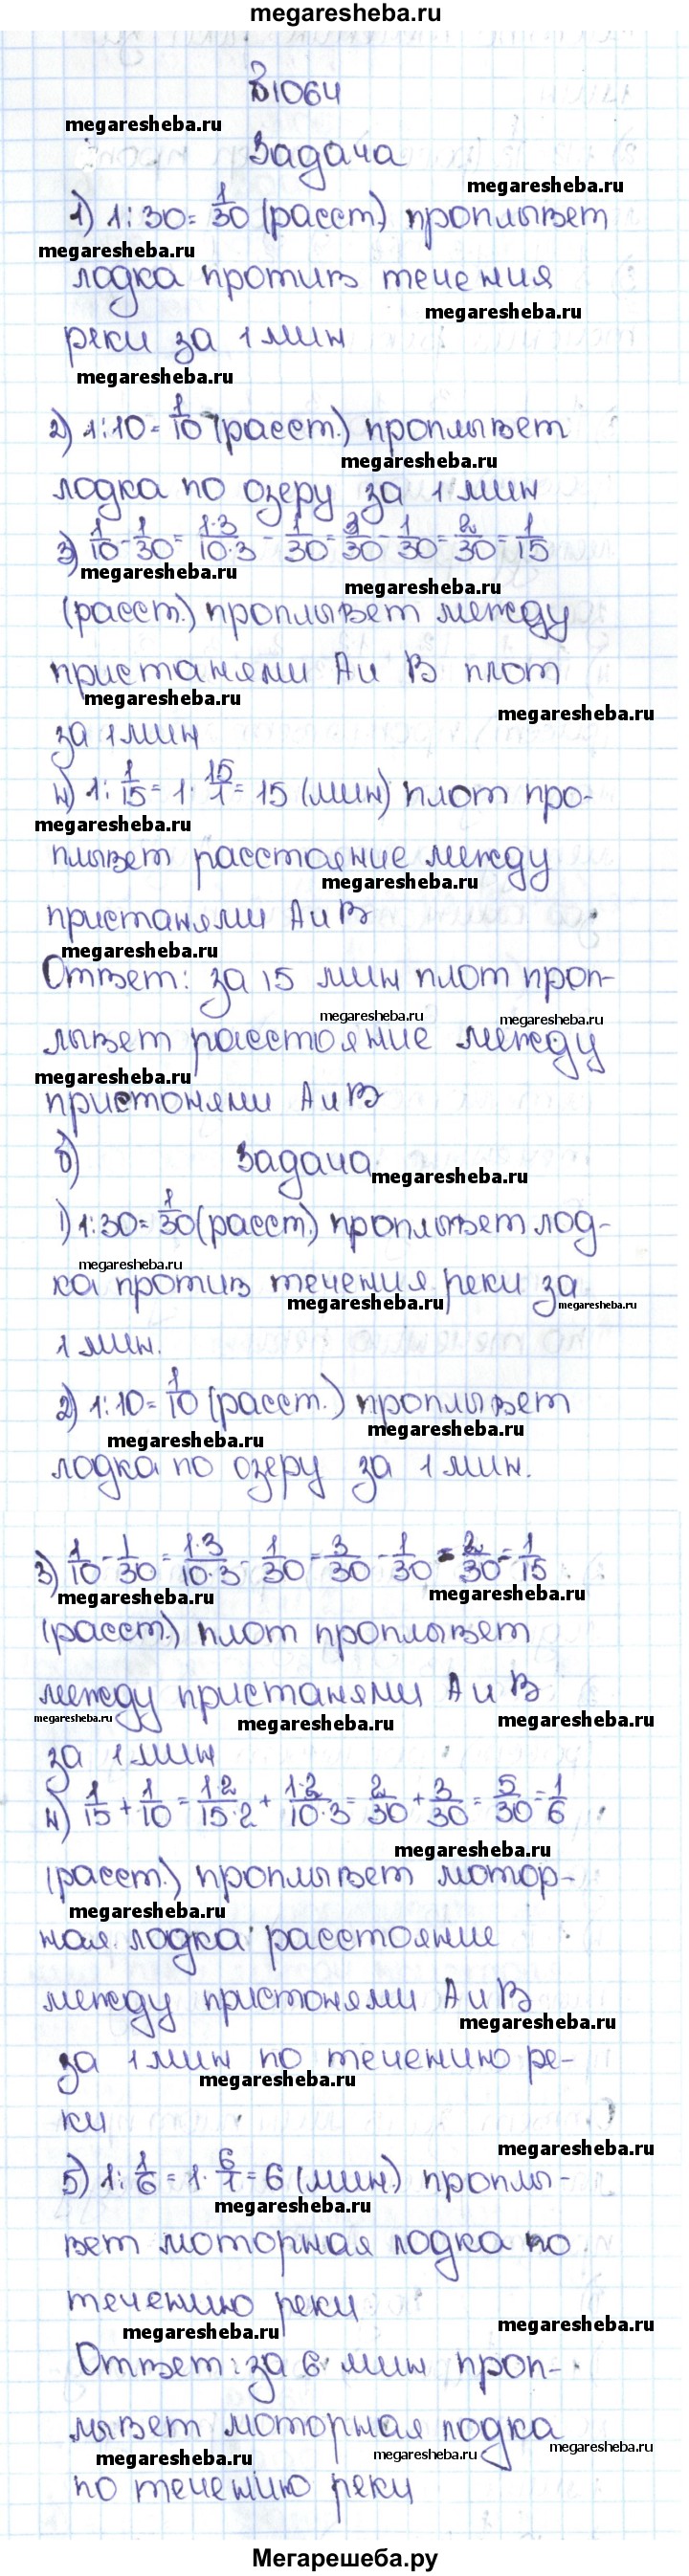 megaresheba.ru
№1064
megaresheba.ru
Задача
megaresheba.ru
1) 1:30=1/30 (расст.) проплывет
megaresheba.ru
лодка против течения
megaresheba.ru
реки за 1 мин
megaresheba.ru
2) 1:10=1/10 (расст.) проплывет
megaresheba.ru
лодка по озеру за 1 мин
3) 1/10-1/30=1·3/10·3-1/30=3/30-1/30=2/30=1/15
megaresheba.ru
megaresheba.ru
(расст.) проплывет между
пристанями А и В плот
megaresheba.ru
megaresheba.ru
за 1 мин
4) 1:1/15=1·15/1=15 (мин) плот про-
megaresheba.ru
плывет расстояние между
megaresheba.ru
пристанями А и В
megaresheba.ru
Ответ: за 15 мин плот проп-
megaresheba.ru
megaresheba.ru
лывет расстояние между
megaresheba.ru
пристонями А и В
б) Задача
megaresheba.ru
1) 1:30=1/30 (расст.) проплывет лод-
megaresheba.ru
ка против течения реки за
megaresheba.ru
megaresheba.ru
1 мин.
2) 1:10=1/10 (расст.) проплывет
megaresheba.ru
megaresheba.ru
лодка по озеру за 1 мин.
3) 1/10-1/30=1·3/10·3-1/30=3/30-1/30=2/30=1/15
megaresheba.ru
megaresheba.ru
(расст.) плот проплывет
между пристанями А и В
megaresheba.ru
megaresheba.ru
megaresheba.ru
за 1 мин
4) 1/15+1/10=1·2/15·2+1·3/10·3=2/30+3/30=5/30=1/6
megaresheba.ru
(расст.) проплывет мотор-
megaresheba.ru
ная лодка расстояние
между пристонями А и В
megaresheba.ru
за 1 мин по течению ре-
megaresheba.ru
ки
megaresheba.ru
5) 1:1/6=1·6/1=6 (мин.) проплы-
megaresheba.ru
вет моторная лодка по
течению реки
megaresheba.ru
megaresheba.ru
Ответ: за 6 мин проп-
лывет моторная лодка
megaresheba.ru
megaresheba.ru
megaresheba.ru
по течению реки
Мегарешеба.ру